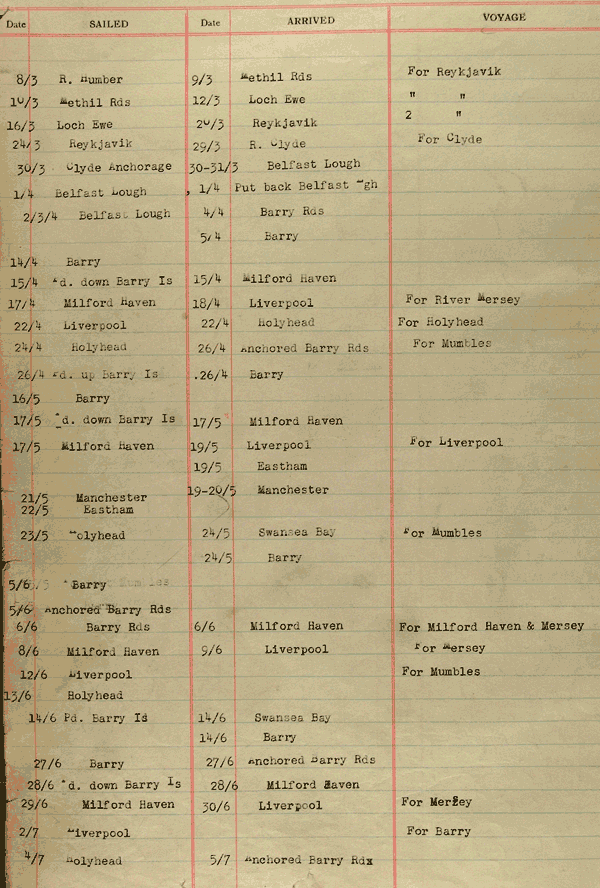 Date SAILED Date ARRIVED VOYAGE
8/3 R. Humber 9/3 Methil Rds For Reykjavik
10/3 Methil Rds 12/3 Loch Ewe " "
16/3 Loch Ewe 20/3 Reykjavik 2 "
24/3 Reykjavik 29/3 R. Clyde For Clyde
30/3 Clyde Anchorage 30-31/3 Belfast Lough
1/4 Belfast Lough 1/4 Put back Belfast Lgh
2/3/4 Belfast Lough 4/4 Barry Rds
5/4 Barry
14/4 Barry
15/4 Pd. down Barry Is 15/4 Milford Haven
17/4 Milford Haven 18/4 Liverpool For River Mersey
22/4 Liverpool 22/4 Holyhead For Holyhead
24/4 Holyhead 26/4 Anchored Barry Rds For Mumbles
26/4 Pd. up Barry Is .26/4 Barry
16/5 Barry
17/5 Pd. down Barry Is 17/5 Milford Haven
17/5 Milford Haven 19/5 Liverpool For Liverpool
19/5 Eastham
19-20/5 Manchester
21/5 Manchester
22/5 Eastham
23/5 Holyhead 24/5 Swansea Bay For Mumbles
24/5 Barry
5/6 Barry
5/6 Anchored Barry Rds
6/6 Barry Rds 6/6 Milford Haven For Milford Haven & Mersey
8/6 Milford Haven 9/6 Liverpool For Mersey
12/6 Liverpool For Mumbles
13/6 Holyhead
14/6 Pd. Barry Id 14/6 Swansea Bay
14/6 Barry
27/6 Barry 27/6 Anchored Barry Rds
28/6 Pd. down Barry Is 28/6 Milford Haven
29/6 Milford Haven 30/6 Liverpool For Mersey
2/7 Liverpool For Barry
4/7 Holyhead 5/7 Anchored Barry Rdx